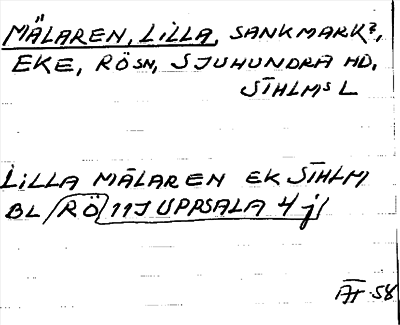 MÄLAREN, LILLA, SANKMARK?,
EKE, RÖSN, SJUHUNDRA HD,
STHLMS L
LILLA MÄLAREN EK STHLM
BL RÖ 11J UPPSALA 4j
ÅH 58